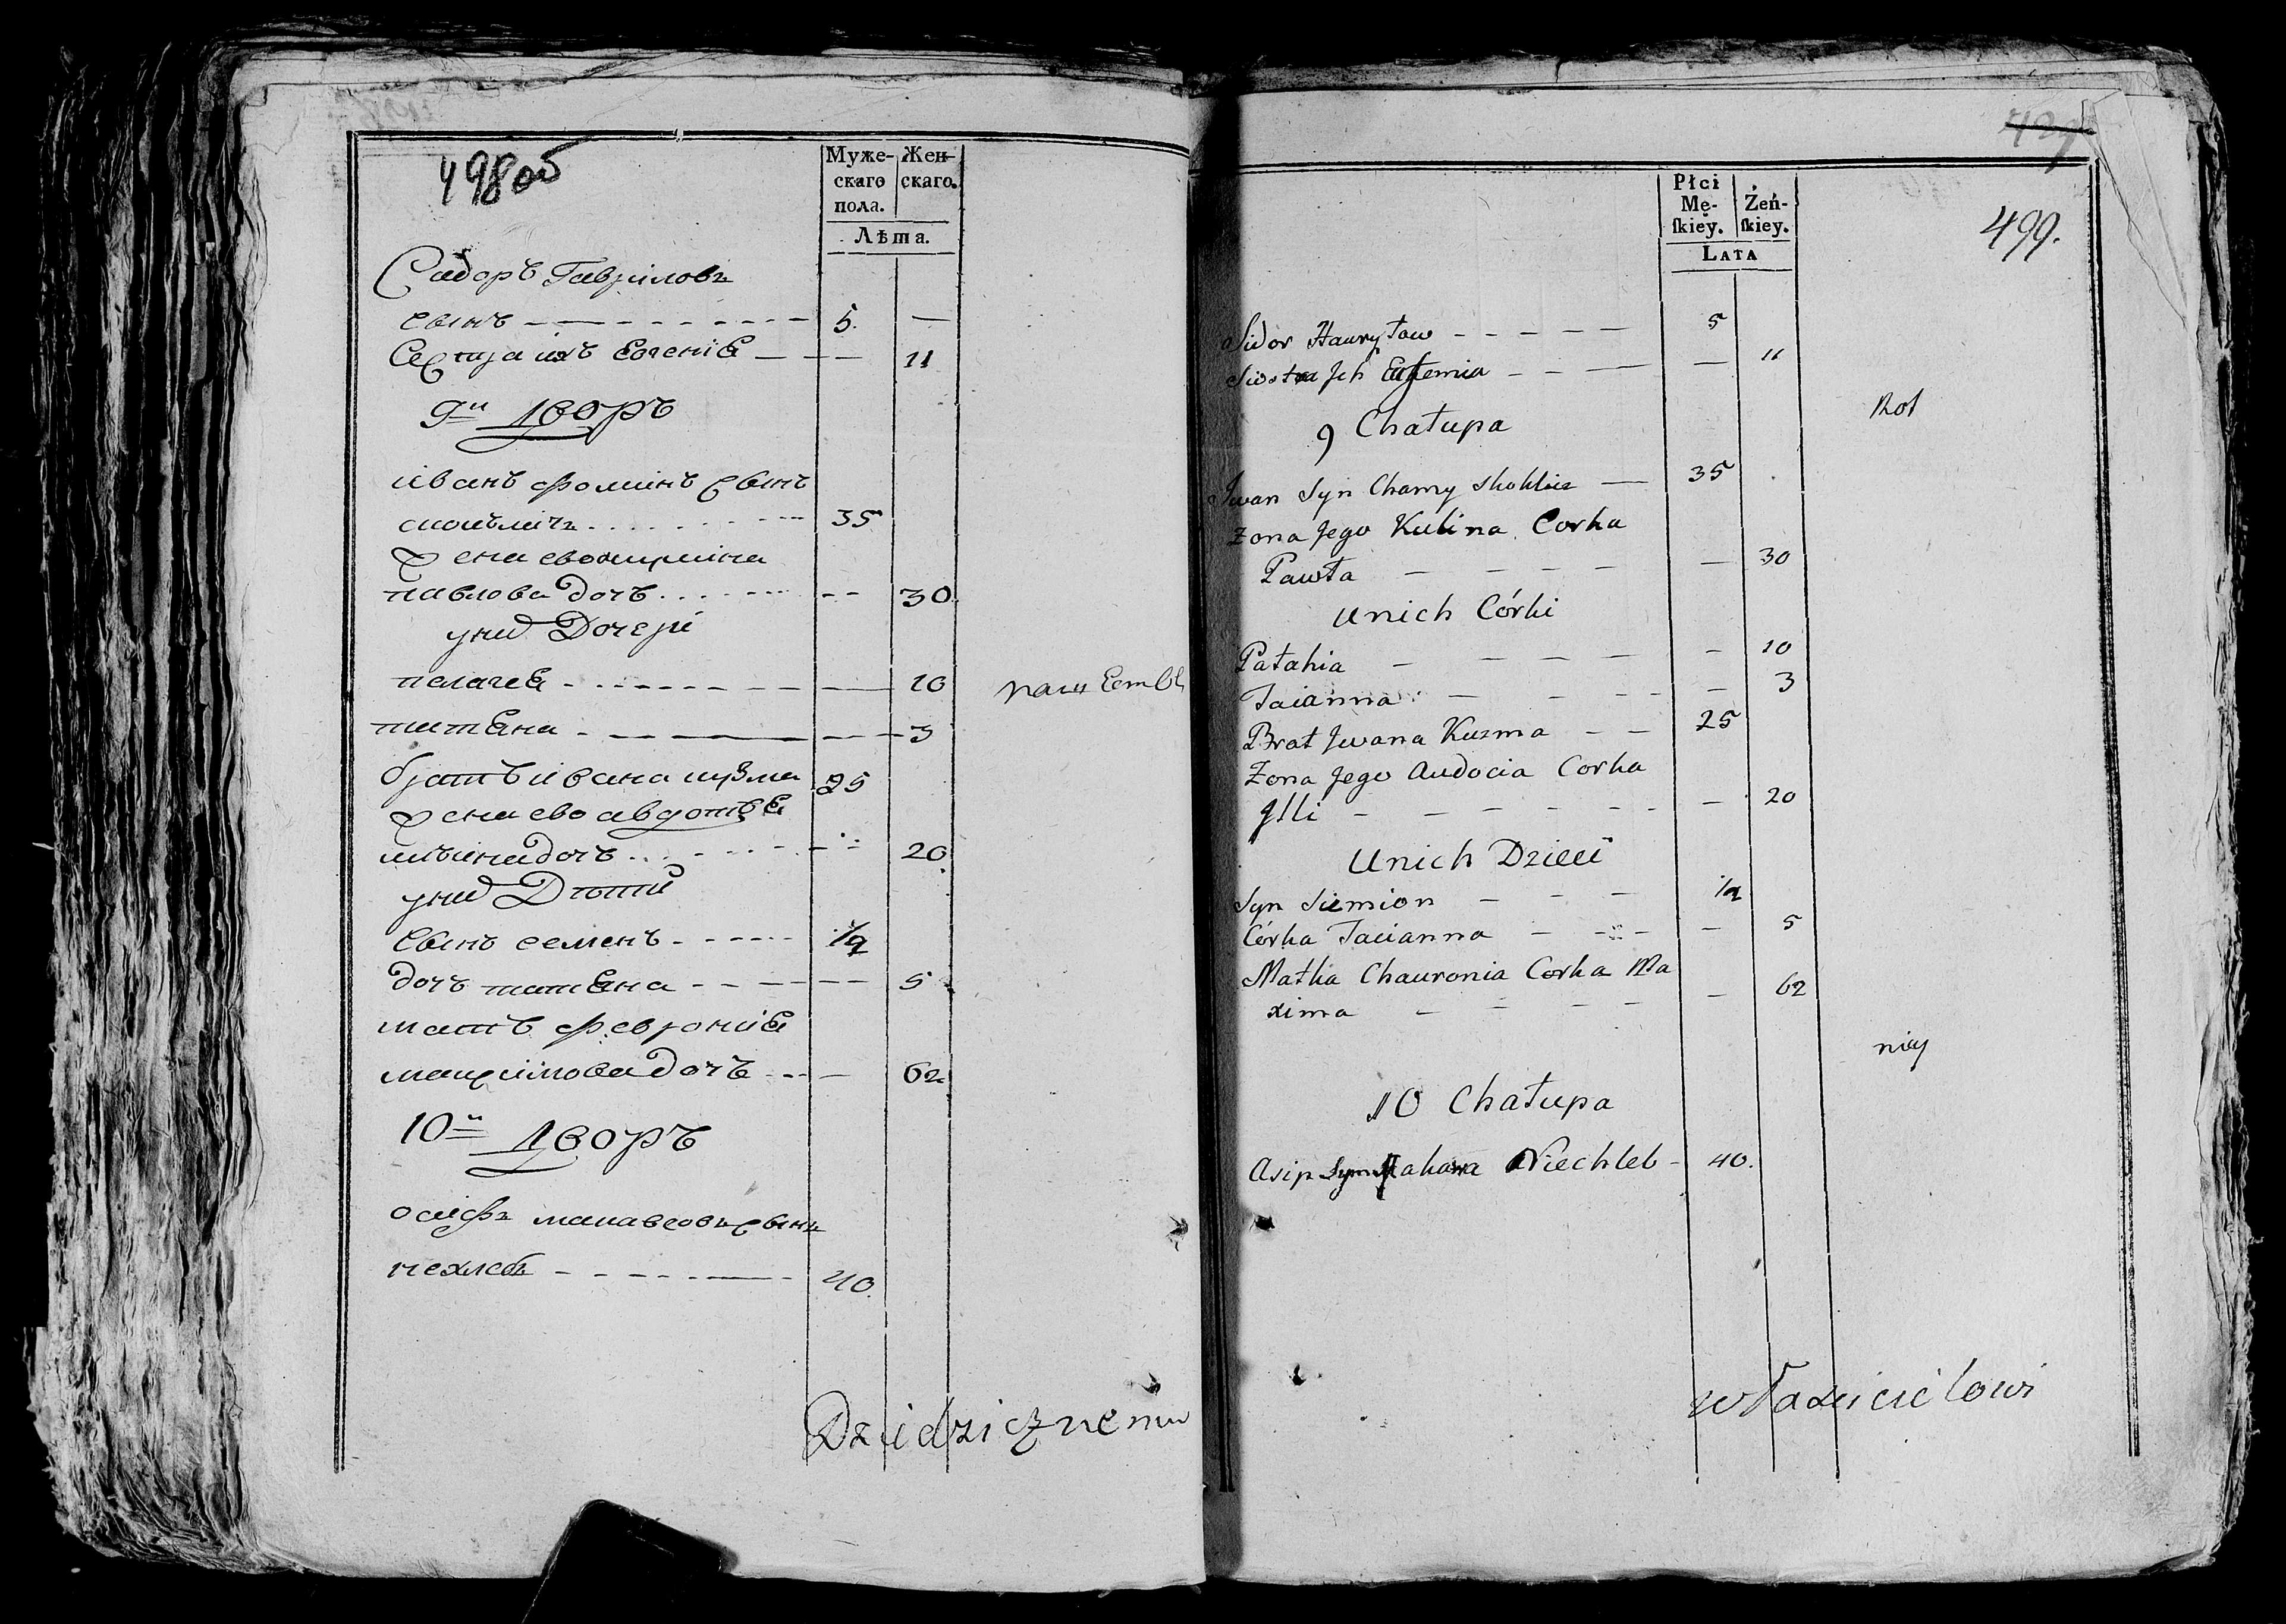 498об
Муже-
скаго
пола.
Жен-
скаго.
Лѣта.
Сидоръ Гавриловъ
сынъ — 5. —
Сестра ихъ Евгенія — 11
9й дворъ
иванъ фоминъ сынъ
35
жена ево акулина
павлова дочъ — 30.
у них Дочери
пелагея — 10
татяна — 3
братъ ивана кузма 25
жена ево авдотья
илъина дочъ — 20.
у них Дѣти
Сынъ семенъ — 1/2
дочъ татяна — 5
матъ феврония
макъсимова дочъ — 62
10й дворъ
осифъ сынъ
нехлебъ — 40.
Dziedzicznemu
499.
Płci
Mę-
skiey.
Żeń-
skiey.
LATA
Sidor Hawryław — 5
Siostra Jch Eugemia — 11
Rot
9 Chałupa
Jwan Syn Chamy — 35
Zona Jego Kulina Corka
Pawła — 30
Unich Córki
Pałahia — 10
Tacianna — 3
Brat Jwana Kuzma — 25
Zona Jego Audocia Corka
Jlli — 20
Unich Dzieci
Syn Siemion — 1/2
Córka Tacianna — 5
Matka Chauronia Corka Ma
xima — 62
niey
10 Chałupa
Asip Syn Niechleb — 40.
właścicielowi